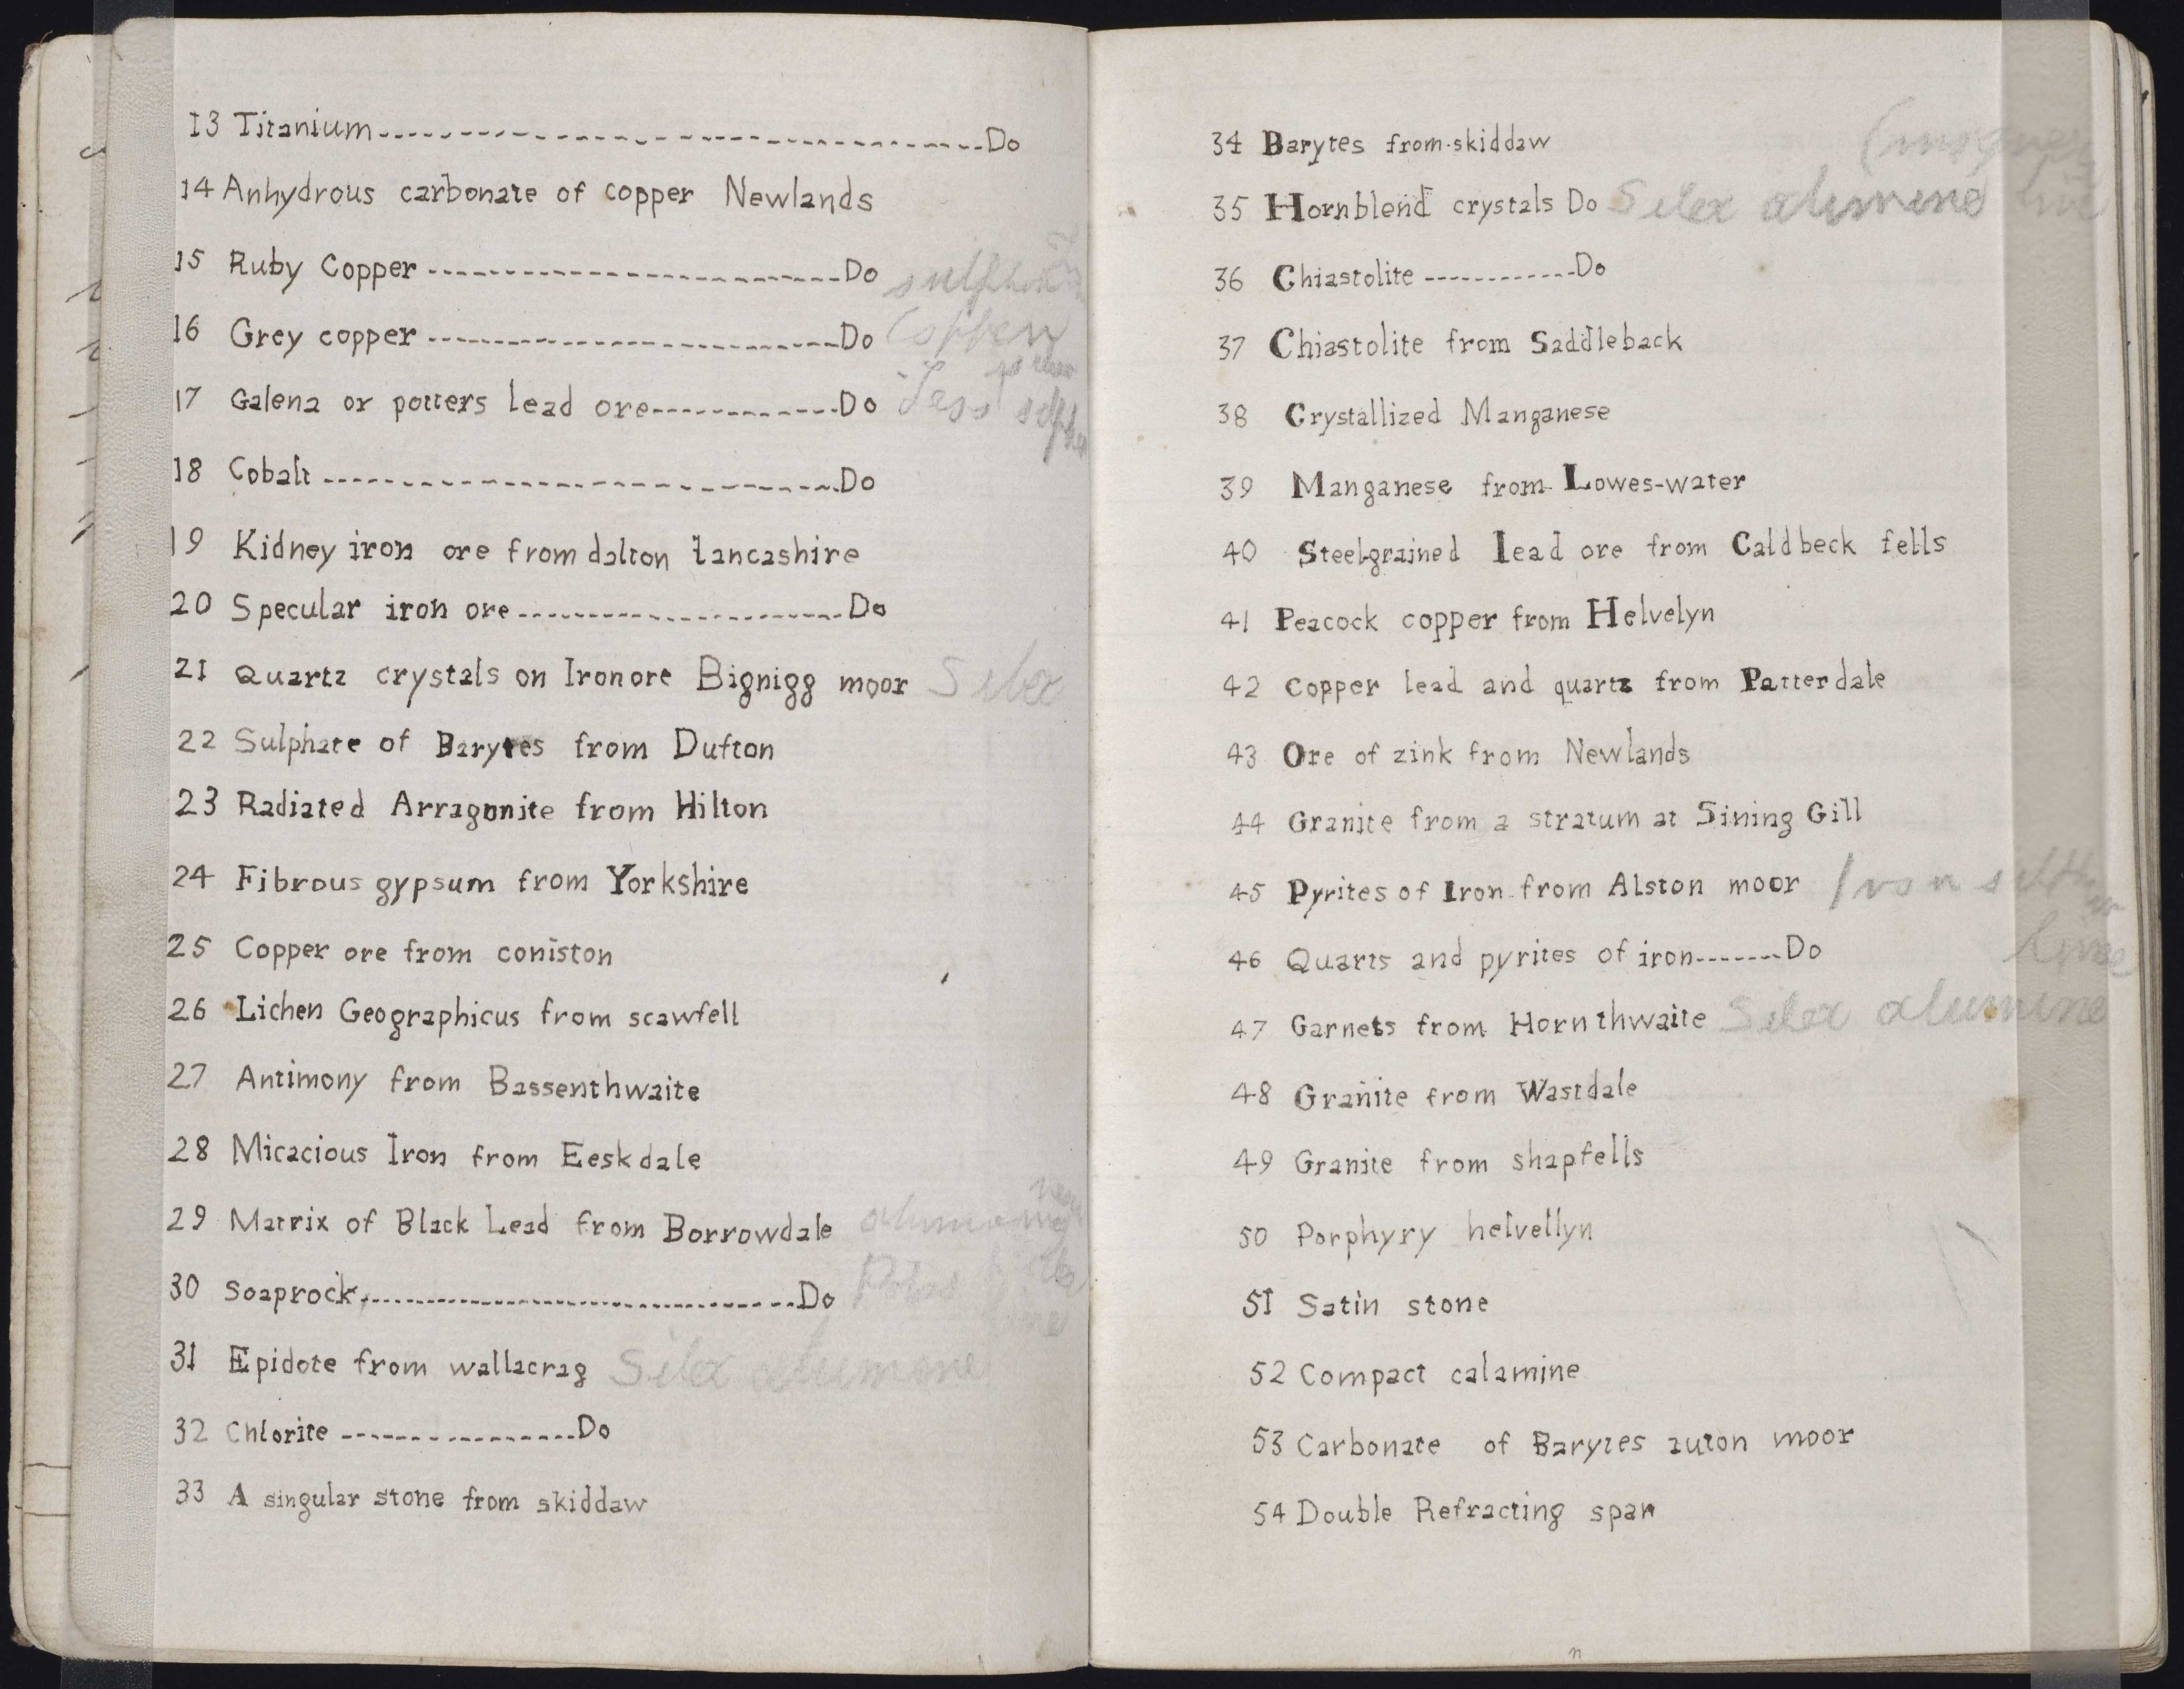 13 Titanium------------------------------------Do
14 Anhydrous carbonate of copper Newlands
15 Ruby Copper-------------------------Do
16 Grey copper-------------------------Do Copper
17 Galena or potters lead ore------------Do Less
18 Cobalt------------------------------Do
19 Kidney iron ore from dalton lancashire
20 Specular iron ore---------------------Do
21 Quartz crystals on Iron ore Bignigg moor Silex
22 Sulphate of Barytes from Dufton
23 Radiated Arragonite from Hilton
24 Fibrous gypsum from Yorkshire
25 Copper ore from coniston
26 Lichen Geographicus from scawfell
27 Antimony from Bassenthwaite
28 Micacious Iron from Eeskdale
29 Matrix of Black Lead from Borrowdale
30 Soaprock--------------------------------Do
31 Epidote from wallacrag Silex alumine
32 Chlorite-----------------Do
33 A singular stone from skiddaw
34 Barytes from skiddaw
35 Hornblend crystals Do Silex alumine
36 Chiastolite------------Do
37 Chiastolite from Saddleback
38 Crystallized Manganese
39 Manganese from Lowes-water
40 Steel-grained lead ore from Caldbeck fells
41 Peacock copper from Helvelyn
42 Copper lead and quartz from Patterdale
43 Ore of zink from Newlands
44 Granite from a stratum at Sining Gill
45 Pyrites of Iron from Alston moor Iron
46 Quarts and pyrites of iron-------Do
lime
47 Garnets from Hornthwaite Silex alumine
48 Granite from Wastdale
49 Granite from shapfells
50 Porphyry helvellyn
51 Satin stone
52 Compact calamine
53 Carbonate of Barytes auton moor
54 Double Refracting spar
n